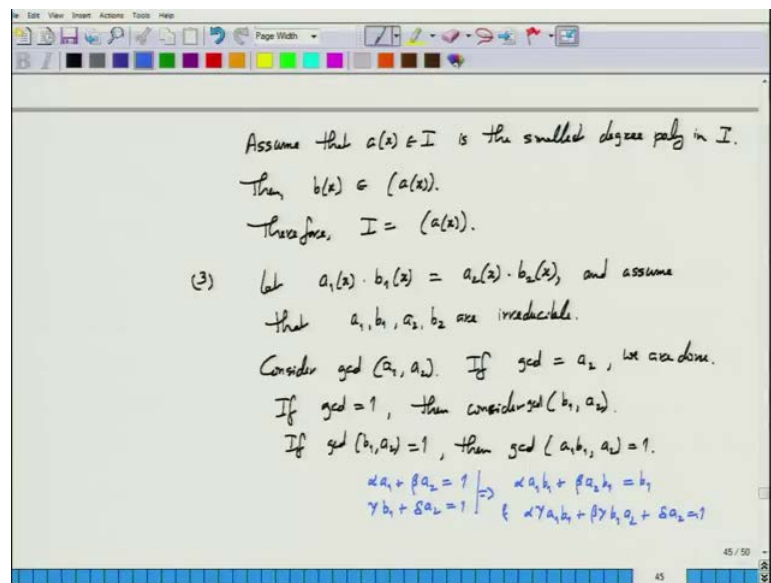 le Edit View Insert Actions Tools Help
Page Width
B I
Assume that a(x) ∈ I is the smallest degree poly in I.
Then, b(x) ∈ (a(x)).
Therefore, I = (a(x)).
(3) Let a₁(x) · b₁(x) = a₂(x) · b₂(x), and assume
that a₁, b₁, a₂, b₂ are irreducible.
Consider gcd (a₁, a₂). If gcd = a₂, we are done.
If gcd = 1, then consider gcd (b₁, a₂).
If gcd (b₁, a₂) = 1, then gcd (a₁b₁, a₂) = 1.
αa₁ + βa₂ = 1 | => αa₁b₁ + βa₂b₁ = b₁
γb₁ + δa₂ = 1 | & αγa₁b₁ + βγb₁a₂ + δa₂ = 1
45 / 50
45